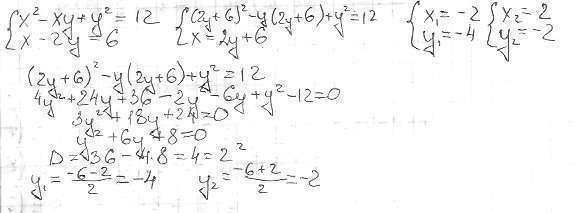 {x² - xy + y² = 12 {(2y+6)² - y(2y+6) + y² = 12 {x₁ = -2 {x₂ = 2
x - 2y = 6 x = 2y + 6 y₁ = -4 y₂ = -2
(2y+6)² - y(2y+6) + y² = 12
4y² + 24y + 36 - 2y² - 6y + y² - 12 = 0
3y² + 18y + 24 = 0
y² + 6y + 8 = 0
D = 36 - 4·8 = 4 = 2²
y₁ = (-6-2)/2 = -4 y₂ = (-6+2)/2 = -2